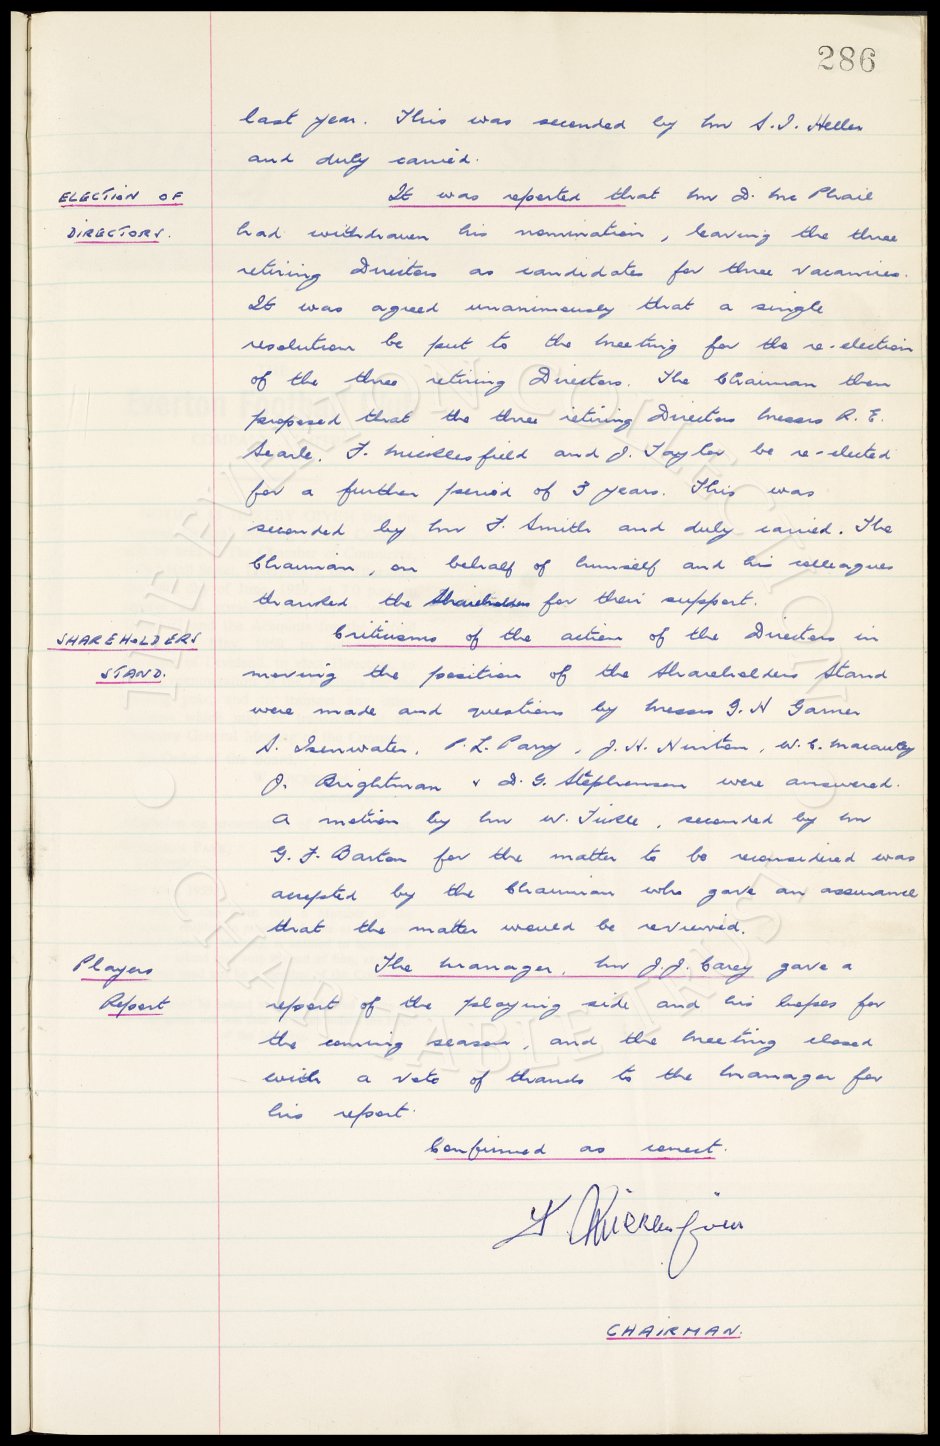 286
last year. This was seconded by Mr S.I. Heller
and duly carried.
ELECTION OF
DIRECTORS.
It was reported that Mr D. Mc Phail
had withdrawn his nomination, leaving the three
retiring Directors as candidates for three vacancies.
It was agreed unanimously that a single
resolution be put to the Meeting for the re-election
of the three retiring Directors. The Chairman then
proposed that the three retiring Directors Messrs R. E.
Searle, F. Micklesfield and J. Taylor be re-elected
for a further period of 3 years. This was
seconded by Mr F. Smith and duly carried. The
Chairman, on behalf of himself and his colleagues
thanked the Shareholders for their support.
SHAREHOLDERS
STAND.
Criticisms of the action of the Directors in
moving the position of the Shareholders Stand
were made and questions by Messrs G. H Garner
S. Isenwater, P. L. Parry, J. H. Ninton, W. E. Macauley
J. Brightman & D. G. Stephenson were answered.
A motion by Mr W. Tickle, seconded by Mr
G. F. Barton for the matter to be reconsidered was
accepted by the Chairman who gave an assurance
that the matter would be reviewed.
Players
Report
The Manager, Mr J. J. Carey gave a
report of the playing side and his hopes for
the coming season, and the Meeting closed
with a vote of thanks to the Manager for
his report.
Confirmed as correct.
CHAIRMAN.
THE EVERTON COLLECTION
CHARITABLE TRUST